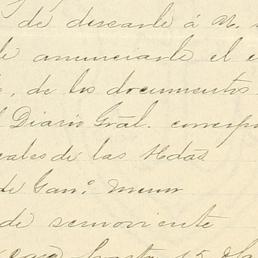 de desearle á V.
de anunciarle el e
, de los documentos
l Diario Gral. correspo
cales de las Hdas
de Gan.º menor
de semoviente
hasta 15 de